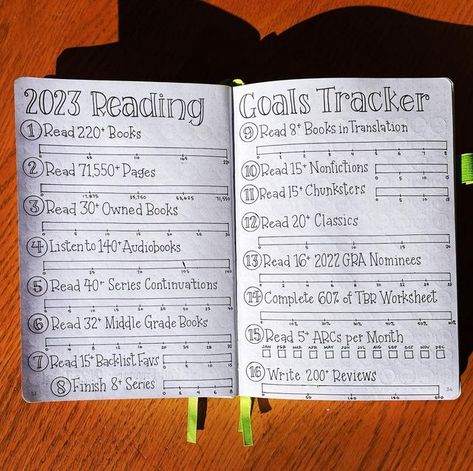 2023 Reading
① Read 220+ Books
55 110 165 220
② Read 71,550+ Pages
17,875 35,750 53,625 71,550
③ Read 30+ Owned Books
④ Listen to 140+ Audiobooks
35 70 105 140
⑤ Read 40+ Series Continuations
⑥ Read 32+ Middle Grade Books
⑦ Read 15+ Backlist Favs
⑧ Finish 8+ Series
Goals Tracker
⑨ Read 8+ Books in Translation
0 1 2 3 4 5 6 7 8
⑩ Read 15+ Nonfictions
⑪ Read 15+ Chunksters
⑫ Read 20+ Classics
0 5 10 15 20
⑬ Read 16+ 2022 GRA Nominees
⑭ Complete 60% of TBR Worksheet
10% 20% 30% 40% 50% 60%
⑮ Read 5+ ARCs per Month
JAN FEB MAR APR MAY JUN JUL AUG SEP OCT NOV DEC
⑯ Write 200+ Reviews
0 50 100 150 200